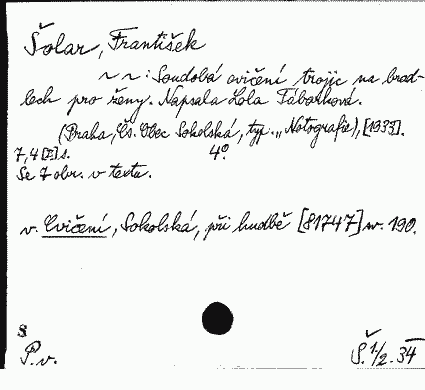 Šolar, František
~ ~ : Soudobá cvičení trojic na brad-
lech pro ženy. Napsala Lola Táborková.
(Praha, Čs. Obec Sokolská, typ. „Notografie), [1933].
7, 4 [I] s. 4°.
Se 7 obr. v textu.
v. Cvičení, Sokolská, při hudbě [81747] sv. 190.
8
P. v. Š. 1/2. 34